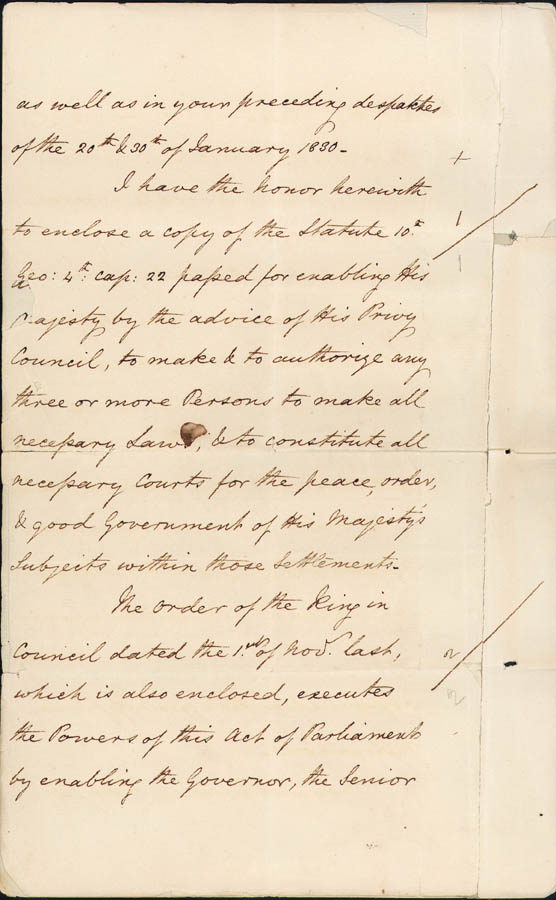 as well as in your preceding despatches
of the 20th & 30th of January 1830-
I have the honor herewith
to enclose a copy of the Statute 10th
Geo: 4th cap: 22 passed for enabling His
Majesty by the advice of His Privy
Council, to make & to authorize any
three or more Persons to make all
necessary Laws, & to constitute all
necessary Courts for the peace, order,
& good Government of His Majesty's
Subjects within those Settlements-
The Order of the King in
Council dated the 1st of Novr last,
which is also enclosed, executes
the Powers of this Act of Parliament
by enabling the Governor, the Senior
+
1
1
2
2